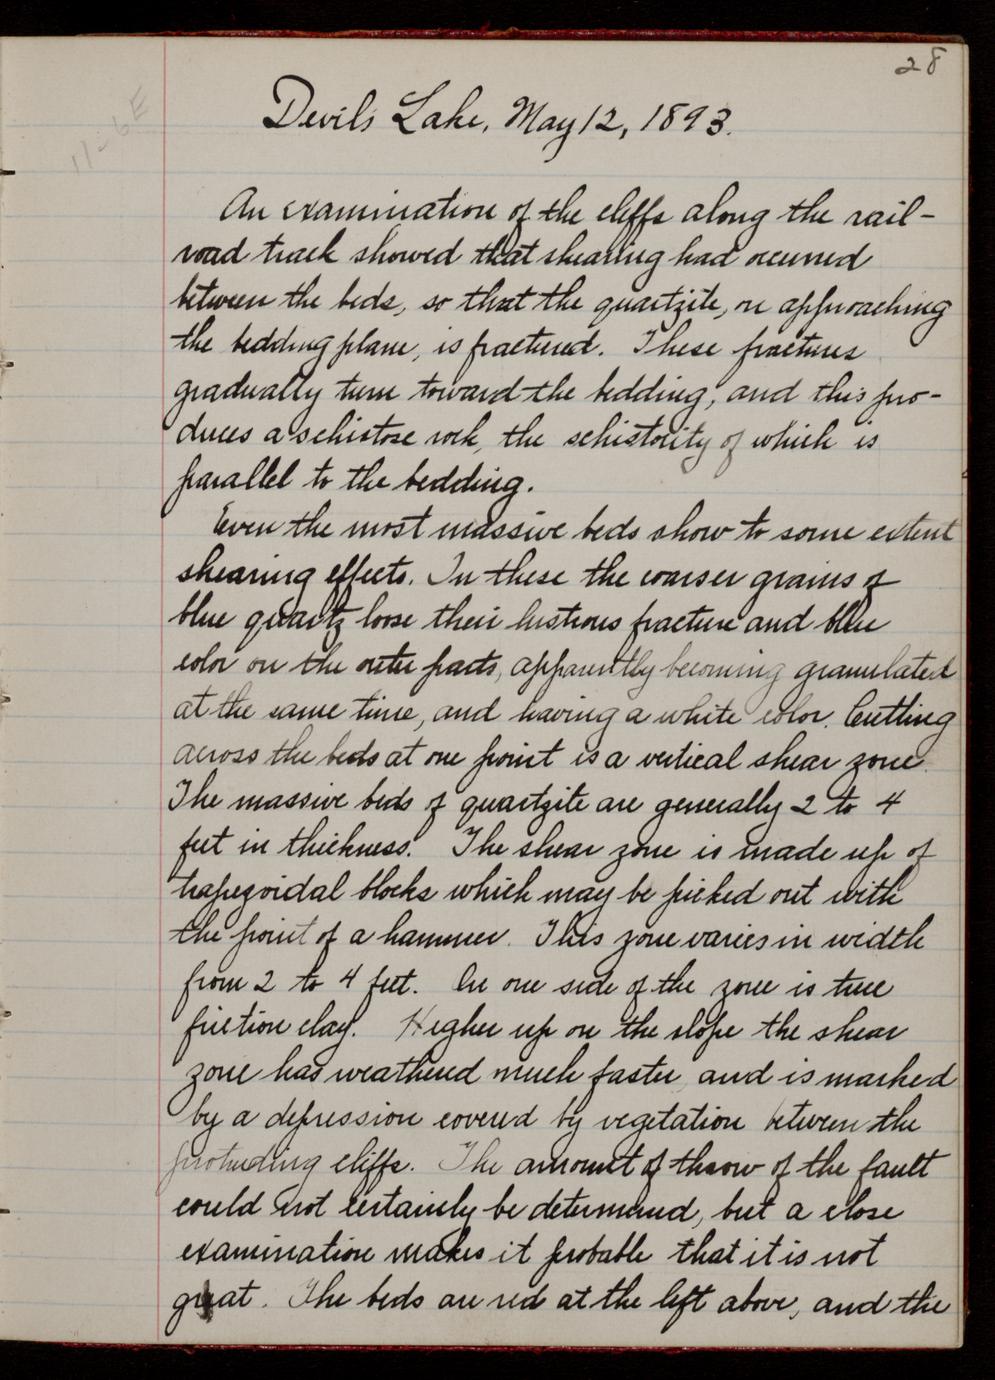 28
11-6E
Devil's Lake, May 12, 1893.
An examination of the cliffs along the rail-
road track showed that shearing had occurred
between the beds, so that the quartzite, on approaching
the bedding plane, is fractured. These fractures
gradually turn toward the bedding, and this pro-
duces a schistose rock, the schistosity of which is
parallel to the bedding.
Even the most massive beds show to some extent
shearing effects. In these the coarser grains of
blue quartz loose their lustrous fracture and blue
color on the outer parts, apparently becoming granulated
at the same time, and having a white color. Cutting
across the beds at one point is a vertical shear zone.
The massive beds of quartzite are generally 2 to 4
feet in thickness. The shear zone is made up of
trapezoidal blocks which may be picked out with
the point of a hammer. This zone varies in width
from 2 to 4 feet. On one side of the zone is true
friction clay. Higher up on the slope the shear
zone has weathered much faster and is marked
by a depression covered by vegetation between the
protruding cliffs. The amount of throw of the fault
could not certainly be determined, but a close
examination makes it probable that it is not
great. The beds are red at the left above, and the